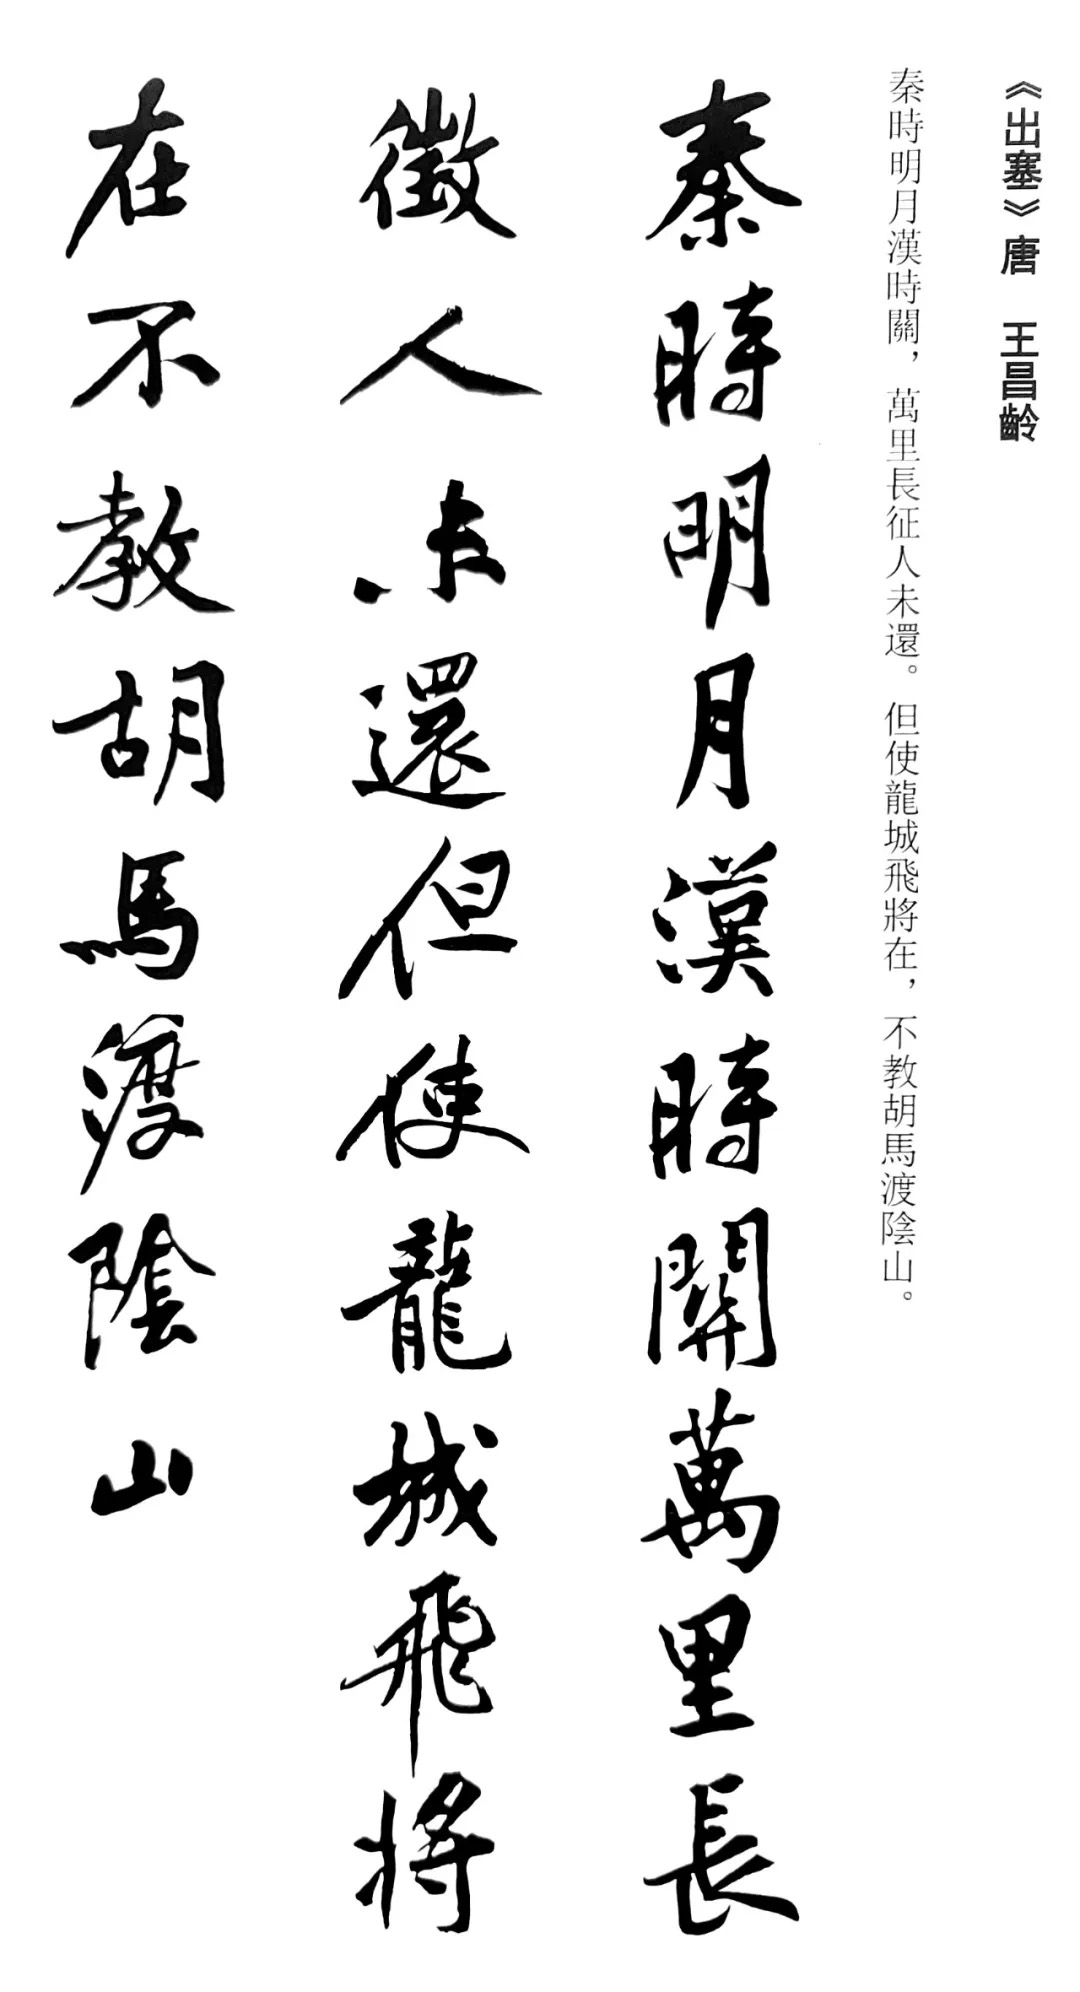 《出塞》唐 王昌齡
秦時明月漢時關，萬里長征人未還。但使龍城飛將在，不教胡馬渡陰山。
秦時明月漢時關萬里長
徵人未還但使龍城飛將
在不教胡馬渡陰山